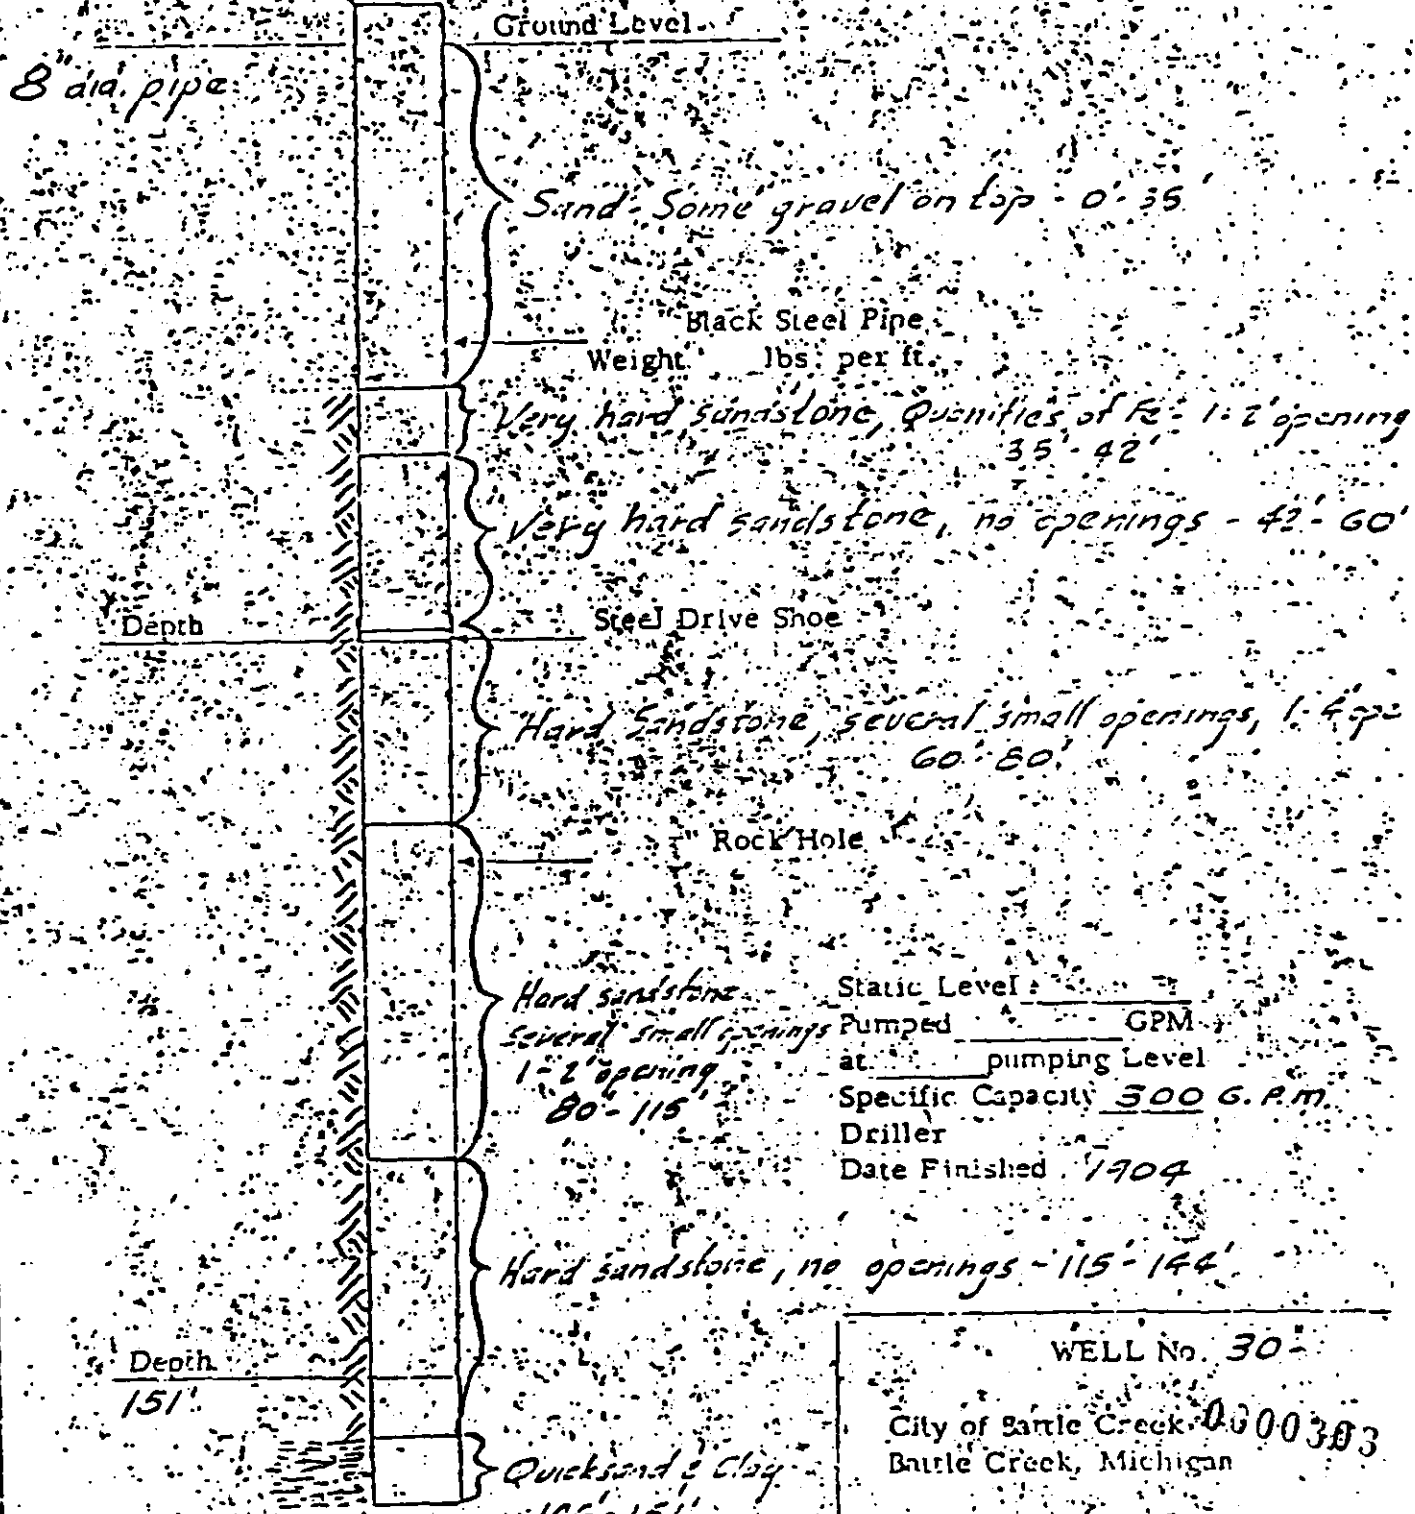 Ground Level
8" dia. pipe
Sand - Some gravel on top - 0'-35'
Black Steel Pipe
Weight lbs. per ft.
Very hard sandstone, Quanities of Fe - 1-2' opening
35'-42'
Very hard sandstone, no openings - 42'-60'
Depth
Steel Drive Shoe
Hard Sandstone, several small openings, 1-4'
60'-80'
" Rock Hole
Hard sandstone
several small openings
1-2' opening
80'-115'
Static Level
Pumped GPM
at pumping Level
Specific Capacity 300 G.P.M.
Driller
Date Finished 1904
Hard sandstone, no openings - 115'-144'
Depth
151'
WELL No. 30
City of Battle Creek 0000303
Battle Creek, Michigan
Quicksand & Clay